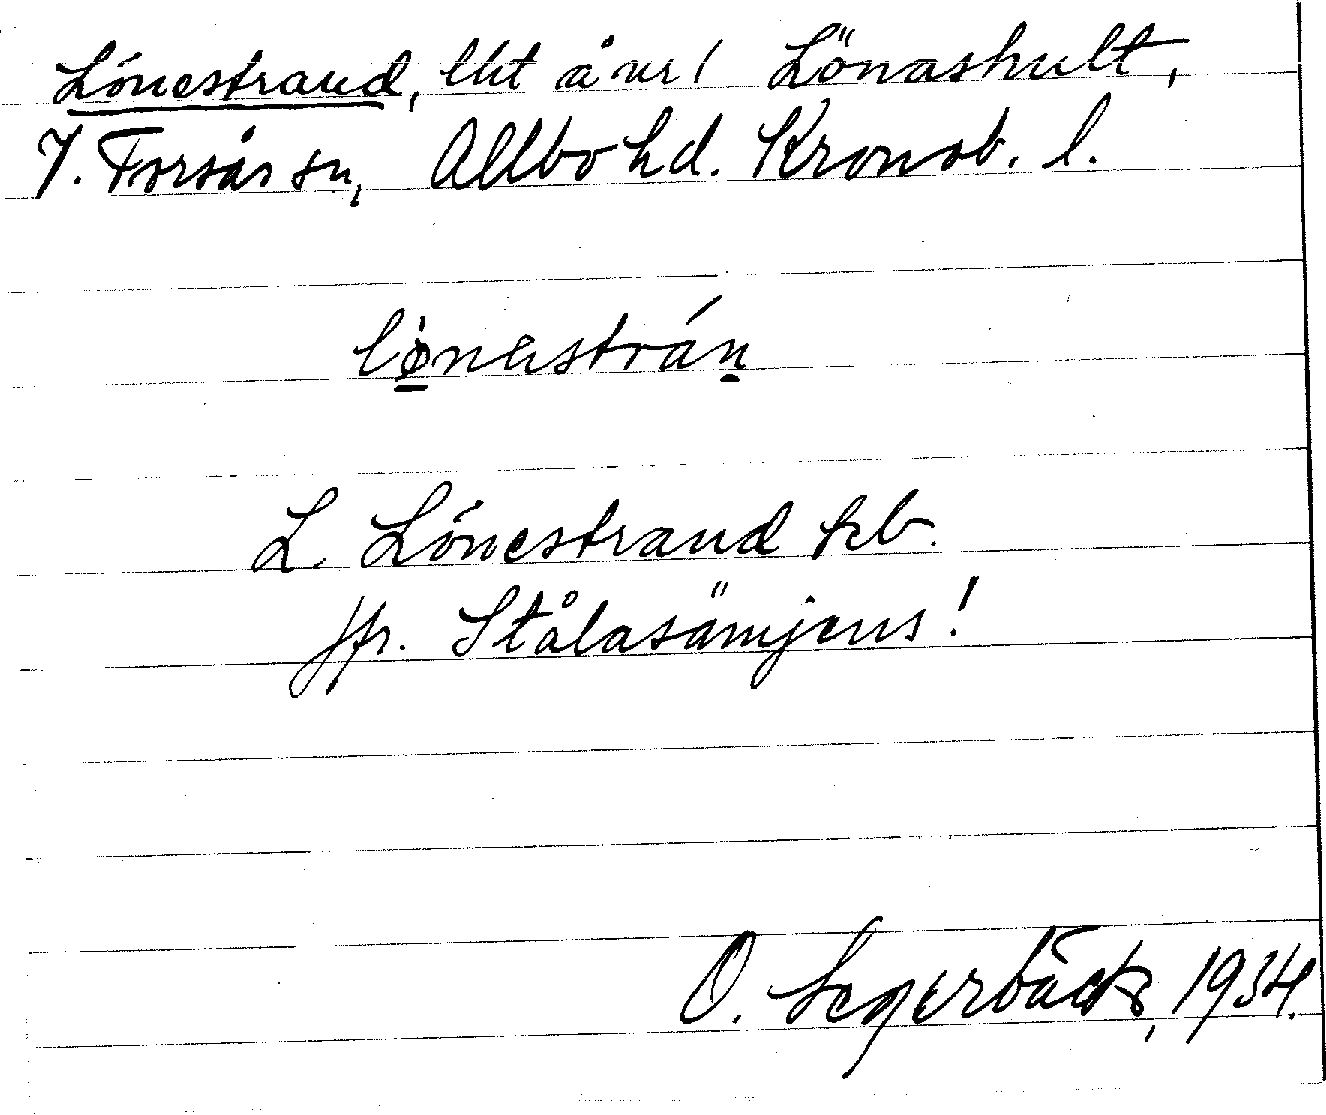 Lönestrand, lht å nr 1 Lönashult,
V. Torsås sn, Allbo hd. Kronob. l.
lönestrán
L Lönestrand kb.
jfr. Stålasämjens!
O. Segerbäck, 1934.